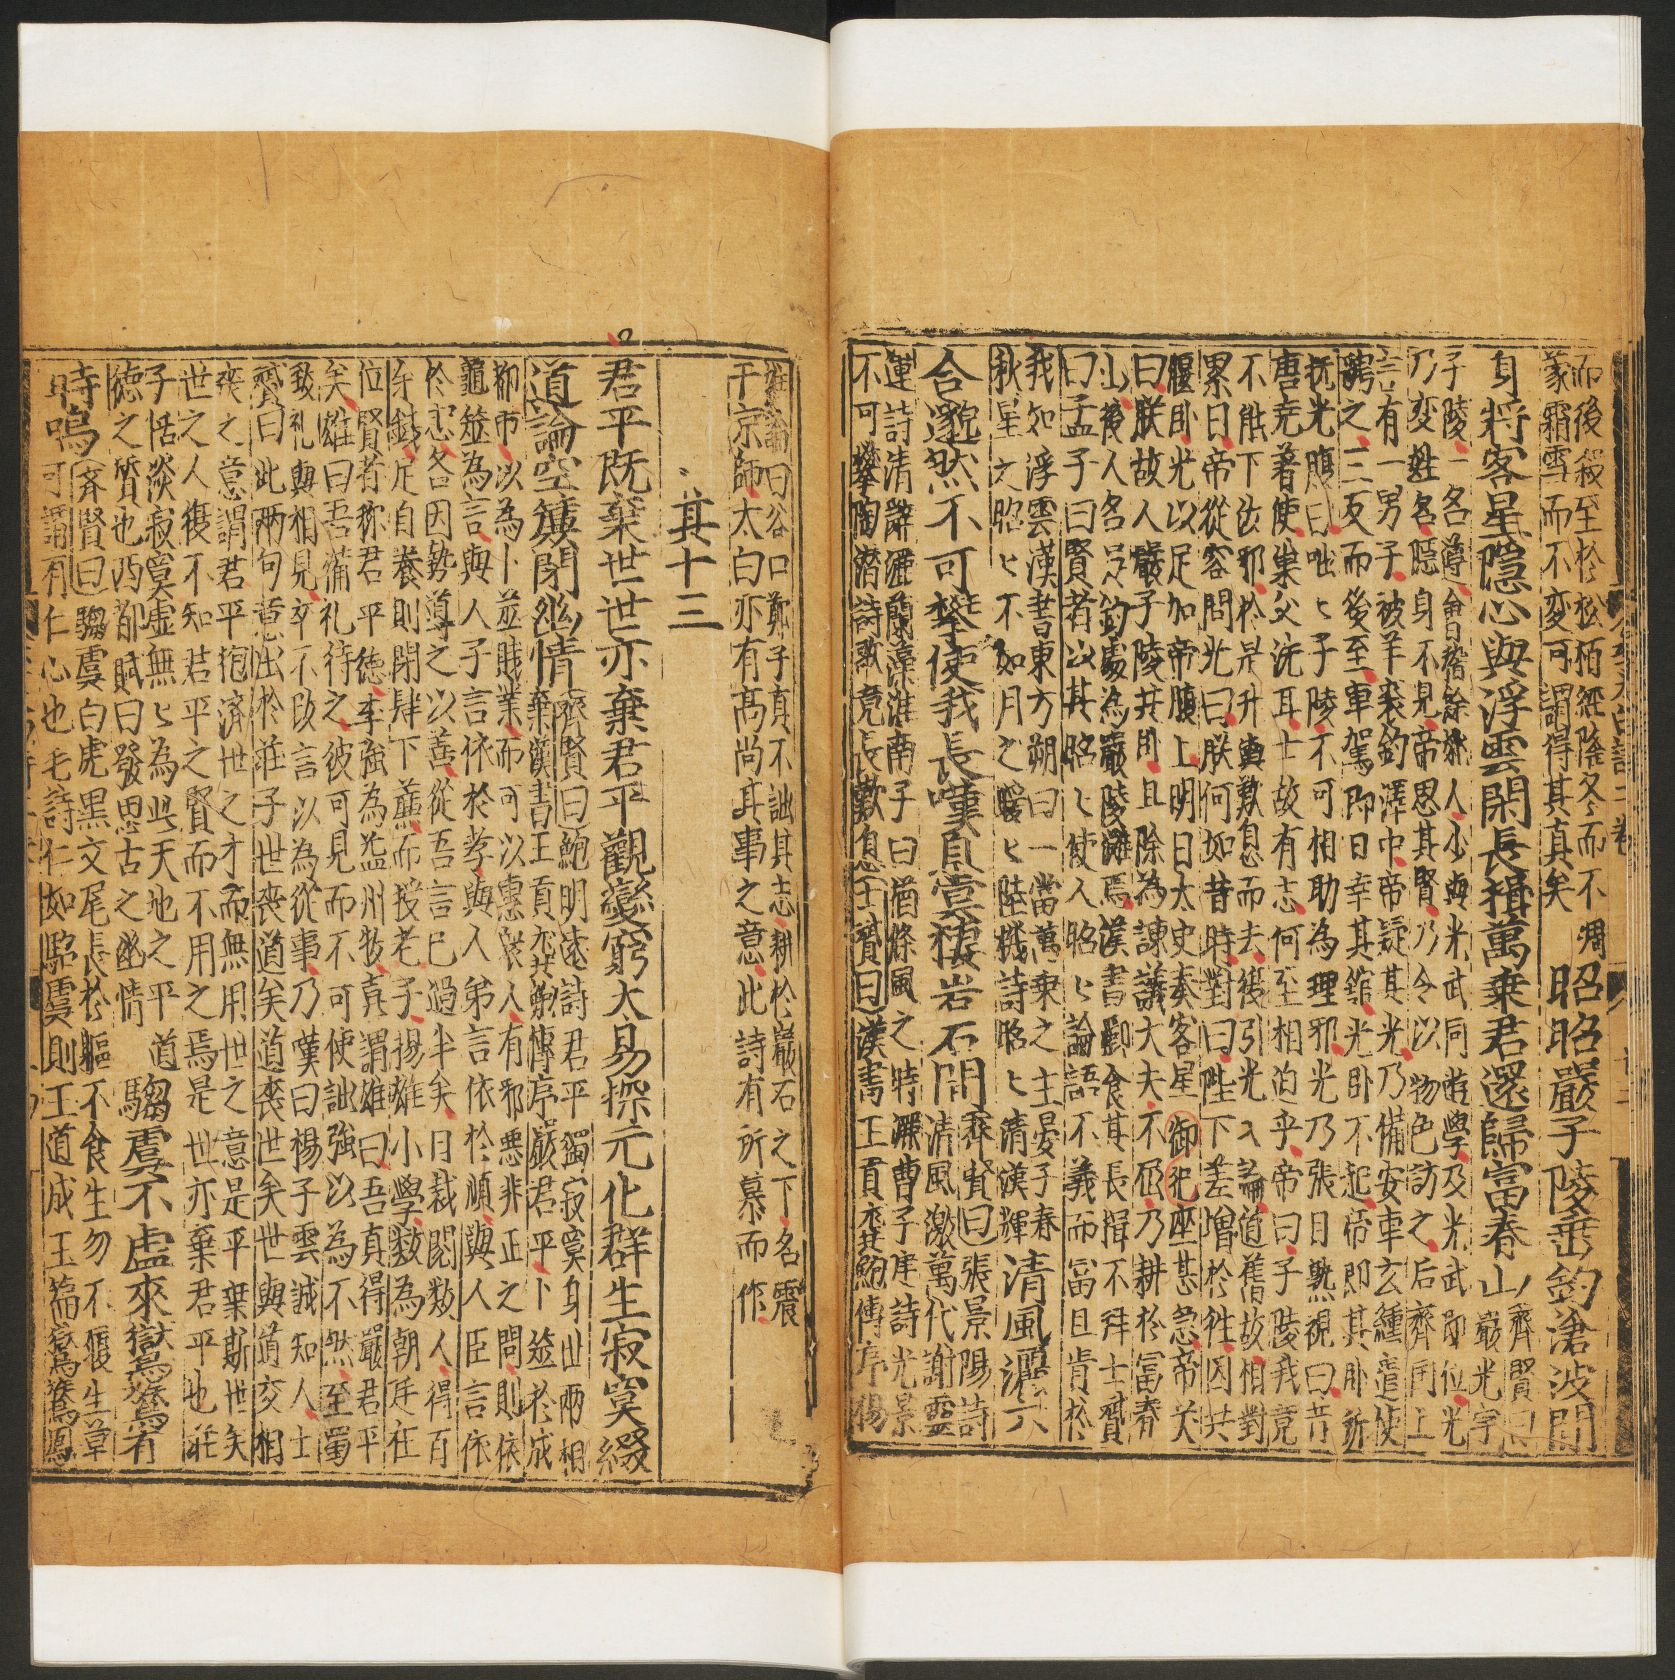 而後叙至於松栢經隆冬而不凋
蒙霜雪而不变可謂得其真矣
昭昭嚴子陵垂釣滄波間
身將客星隱心與浮雲閑長揖萬乗君還歸富春山
齊賢曰
嚴光字
子陵一名遵會稽餘姚人少與光武同遊學及光武即位光
乃变姓名隱身不見帝思其賢乃令以物色訪之后齊国上
言有一男子被羊裘釣澤中帝疑其光乃備安車玄纁遣使
聘之三反而後至車駕即日幸其舘光卧不起帝即其卧所
撫光腹曰咄〻子陵不可相助為理邪光乃張目熟視曰昔
唐尭著德巢父洗耳士故有志何至相迫乎帝曰子陵我竟
不能下汝邪於是升輿歎息而去後引光入論道舊故相對
累日帝從容問光曰朕何如昔時對曰陛下差增於徃因共
偃卧光以足加帝腹上明日太史奏客星御犯座甚急帝笑
曰朕故人嚴子陵共卧且除為諫議大夫不屈乃耕於富春
山後人名其釣處為嚴陵瀬焉漢書酈食其長揖不拜士贇
曰孟子曰賢者以其昭〻使人昭〻論語不義而冨且貴於
我如浮雲漢書東方朔曰一當萬乗之主晏子春
秋星之昭〻不如月之曖〻陸機詩昭〻清漢輝
清風灑六
合邈然不可攀使我長嘆息㝠棲岩石間
齊賢曰張景陽詩
清風激萬代謝靈
運詩清辭灑蘭藻淮南子曰猶條風之時灑曹子建詩光景
不可攀陶潜詩歌竟長歎息士贇曰漢書王貢兩龔鮑傳序楊
雄論曰谷口鄭子真不詘其志耕於巖石之下名震
于京師太白亦有髙尚其事之意此詩有所慕而作
其十三
君平既棄世世亦棄君平觀變窮太易探元化群生寂寞綴
道論空簾閉幽情
齊賢曰鮑明遠詩君平獨寂寞身世兩相
棄漢書王貢兩龔鮑傳序嚴君平卜筮於成
都市以為卜筮賤業而可以惠衆人有邪惡非正之問則依
龜筮為言與人子言依於孝與人弟言依於順與人臣言依
於忠各因勢導之以善從吾言已過半矣日裁閱數人得百
錢足自養則閉肆下簾而授老子揚雄少學數為朝廷在
位賢者称君平徳李強為益州牧喜謂雄曰吾真得嚴君平
矣雄曰吾備礼待之彼可見而不可使詘強以為不然至蜀
致礼與相見卒不敢言以為從事乃嘆曰楊子雲誠知人士
贇曰此兩句意出於莊子世丧道矣道丧世矣世與道交相
丧之意謂君平抱濟世之才而無用世之意是平棄斯世矣
世之人復不知君平之賢而不用之焉是世亦棄君平也莊
子恬淡寂寞虚無〻為此天地之平道
徳之質也西都賦曰發思古之幽情
騶虞不虛來鸑鷟有
時鳴
齊賢曰騶虞白虎黒文尾長於軀不食生物不履生草
可謂有仁心也毛詩仁如騶虞則王道成王篇鸑鷟鳳